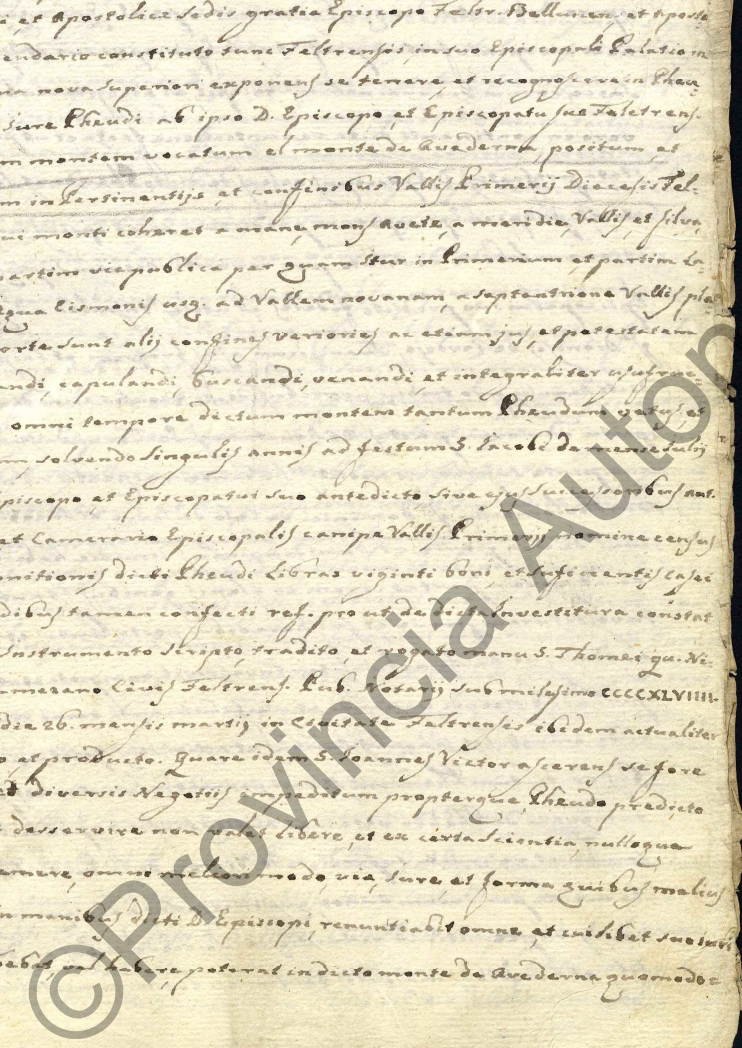 et Apostolicæ Sedis gratia Episcopo Feltr. Bellunen. et Aposto
endario constituto tunc Feltrensis, in suo Episcopali Palatio in
na nova superiori exponens se tenere, et recognoscere in Pheu-
Jure Pheudi ab ipso D. Episcopo, et Episcopatu suo Feletrens.
m montem vocatum el monte de Avederna, positum, et
m in Pertinentijs, et confinibus Vallis Primerij Diecesis Fel-
ui monti coheret a mane, mons Avete, a meridie, Vallis, et silva,
partim via publica per quam itur in Primerium, et partim La-
qua Cismonis usq. ad Vallem novanam, a septentrione Vallis
orte sunt alij confines veriories ac etiam jus, et potestatem
andi, capulandi, buscandi, venandi, et integraliter usufruc-
omni tempore dictum montem tantum Pheudum vetus, et
m solvendo singulis annis ad festum S. Iacobi de mense Julij
piscopo, et Episcopatui suo antedicto, sive ejus successoribus aut.
et Camerario Episcopalis canipe Vallis Primerij nomine census
nitionis dicti Pheudi Libras viginti boni, et suficientis Casei
dibus tamen confecti ref. pro ut de dicta Investitura constat
Instrumento scripto, tradito, et rogato manu S. Thomei qu. Ni-
merano Civis Feltrens. Pub. Notarij sub milesimo CCCCXLVIIII.
die 26. mensis martij in Civitate Feltrensis ibidem actualiter
o, et producto. Quare idem S. Joannes Victor asserens se fore
et diversis Negotiis impeditum propterque, Pheudo predicto
desservire non valet Libere, et ex certa scientia, nulloque
omni meliori modo, via, Jure, et forma quibus melius
in manibus dicti D. Episcopi, renuntiabit omne, et cuilibet suo iuri
bebat, vel habere poterat in dicto monte de Avederna quomodo=
©Provincia Auton